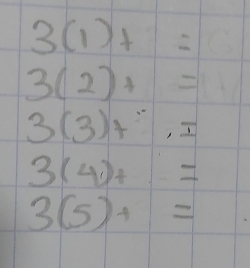 3(1)+ =
3(2)+ =
3(3)+ =
3(4)+ =
3(5)+ =